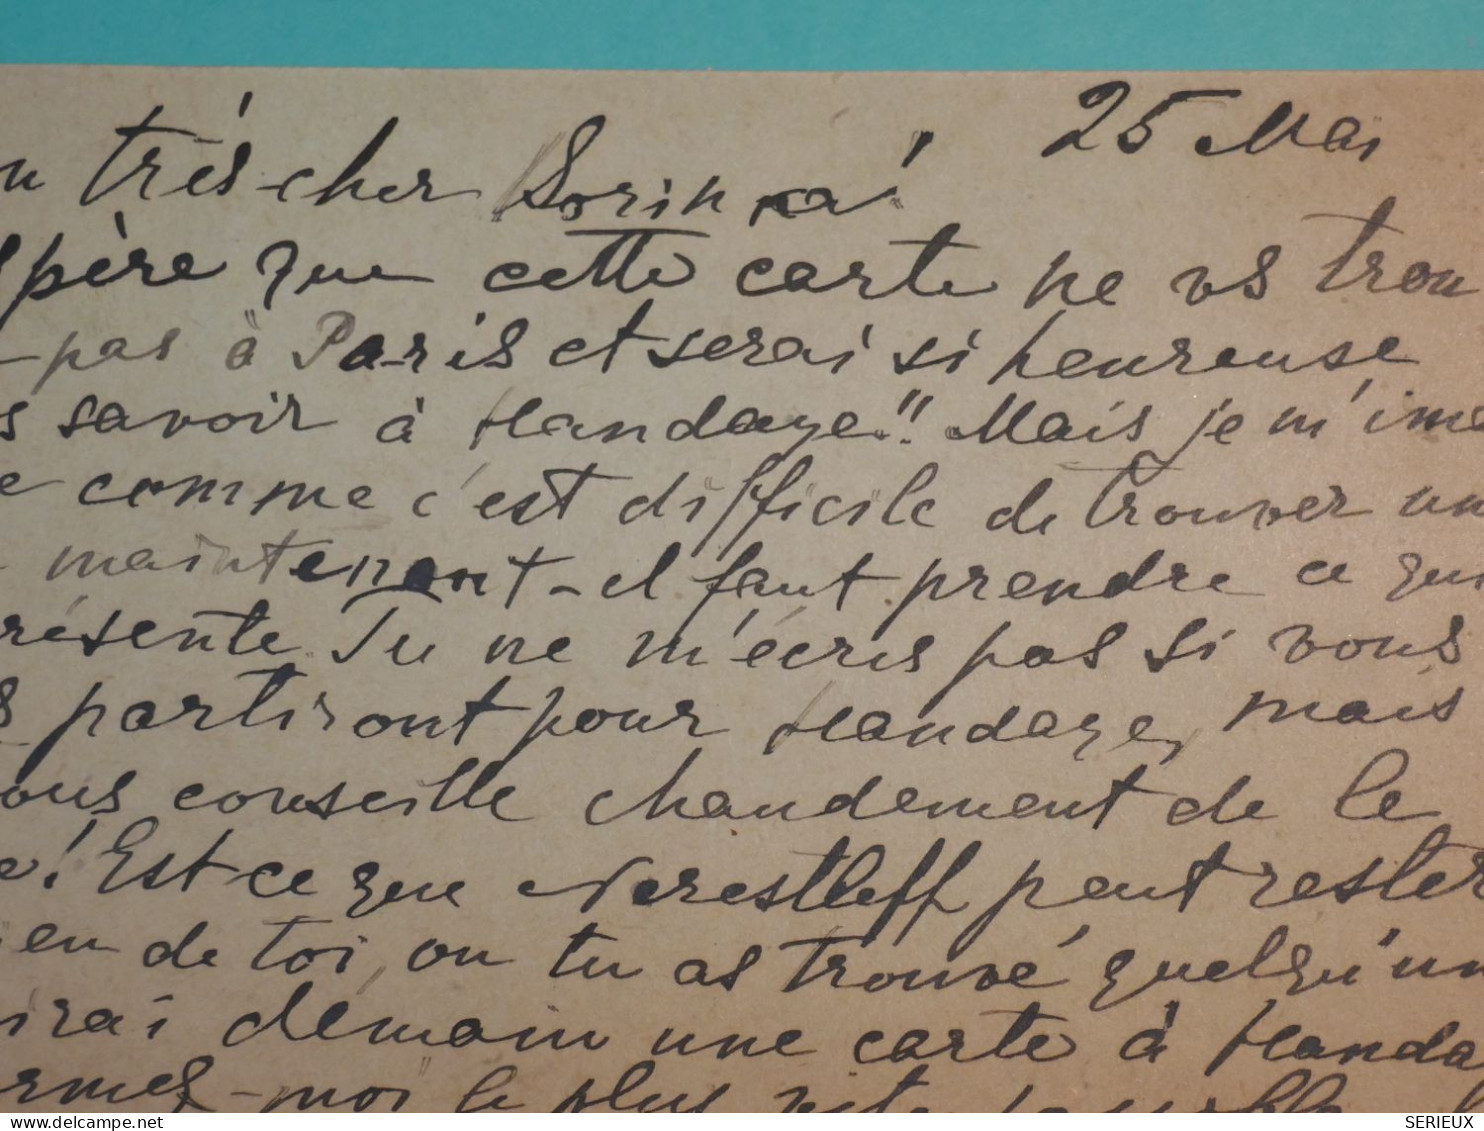 25 Mai
n très cher Sorin
spère que cette carte ne vs trou
- pas à Paris et serai si heureuse
s savoir à Handaye!! Mais je m'ima
e comme c'est difficile de trouver un
maintenant - il faut prendre ce qui
résente. Tu ne m'écris pas si vous
s partiront pour Handaye, mais
ous conseille chaudement de le
e! Est-ce que Nerestleff peut rester
ien de toi, ou tu as trouvé quelqu'un
irai démain une carte à Handa
ormez-moi le plus vite possible
delcampe.net
SERIEUX